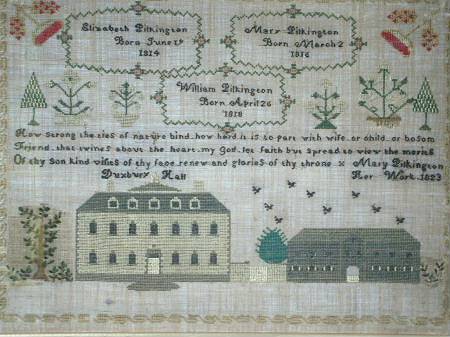 Elizabeth Pilkington
Born June 19
1814
Mary Pilkington
Born March 2
1816
William Pilkington
Born April 26
1818
How strong the ties of nature bind how hard it is to part with wife or child or bosom
Friend that twines about the heart my God let faith but spread to view the merits
Of thy son kind vifies of thy face renew and glories of thy throne x Mary Pilkington
Duxbury Hall Her Work 1823